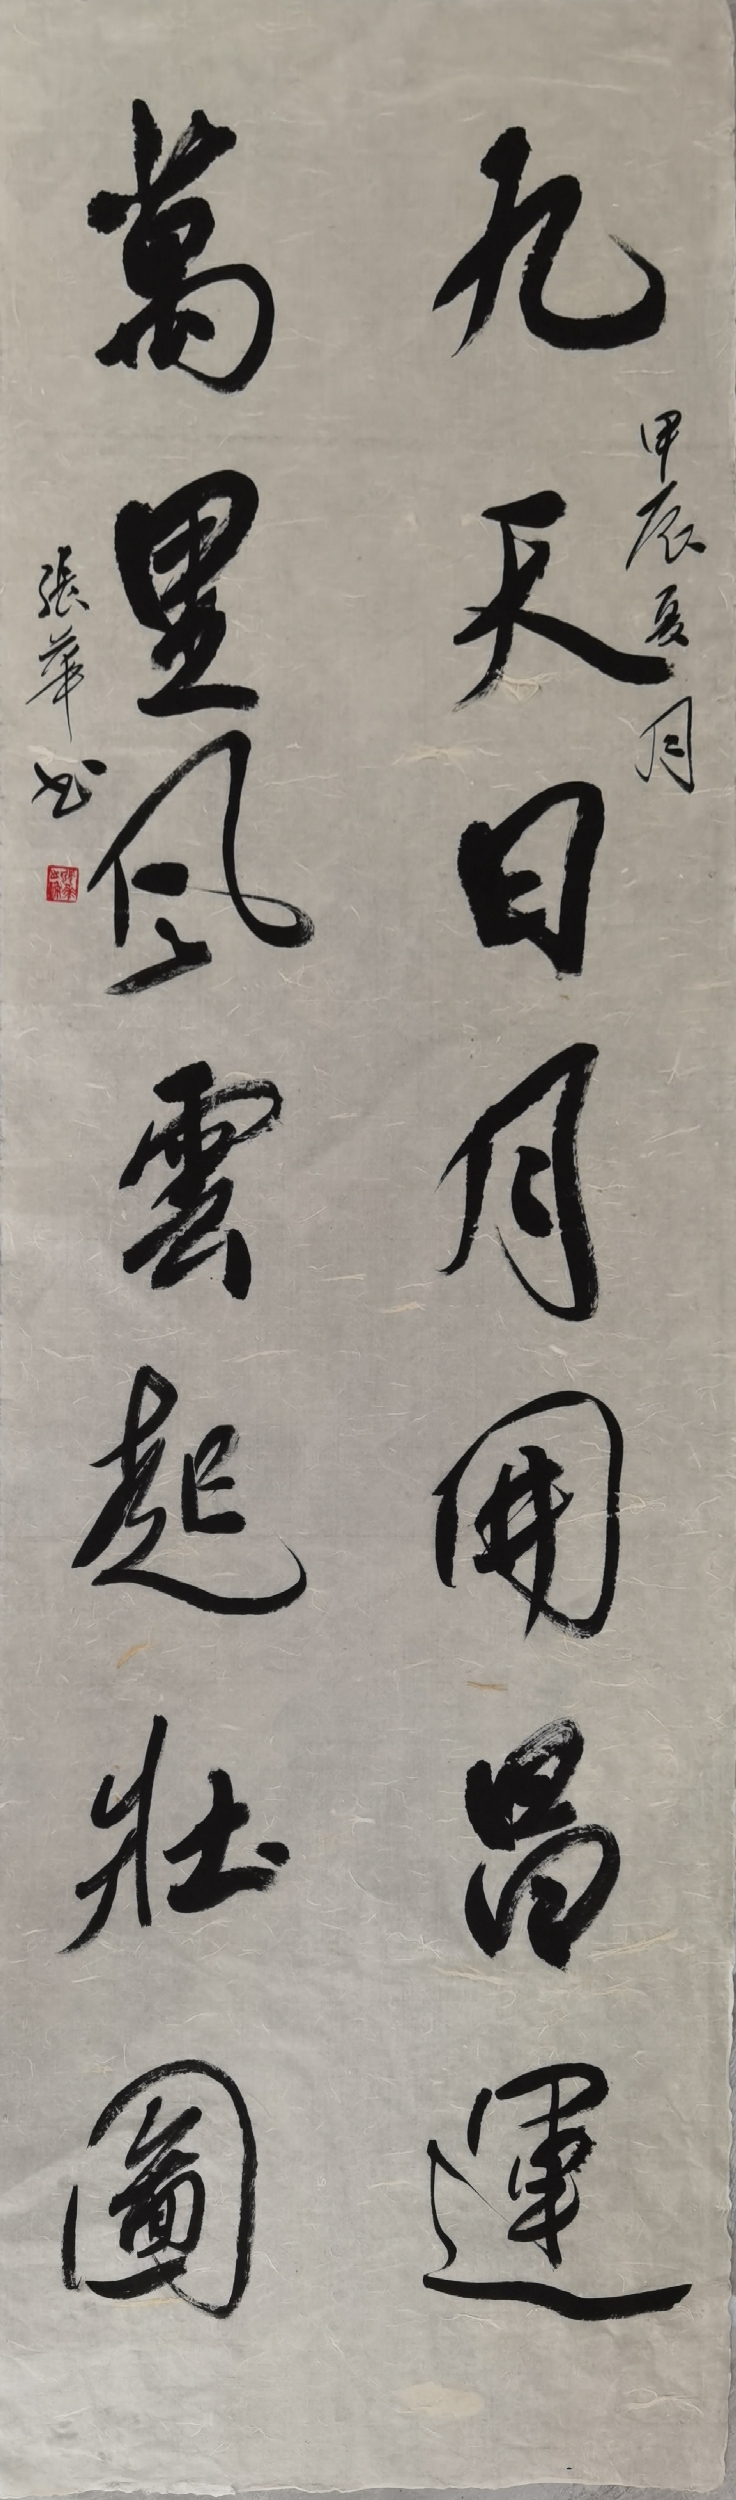 九天日月開昌運
甲辰夏月
萬里風雲起壯圖
張華书